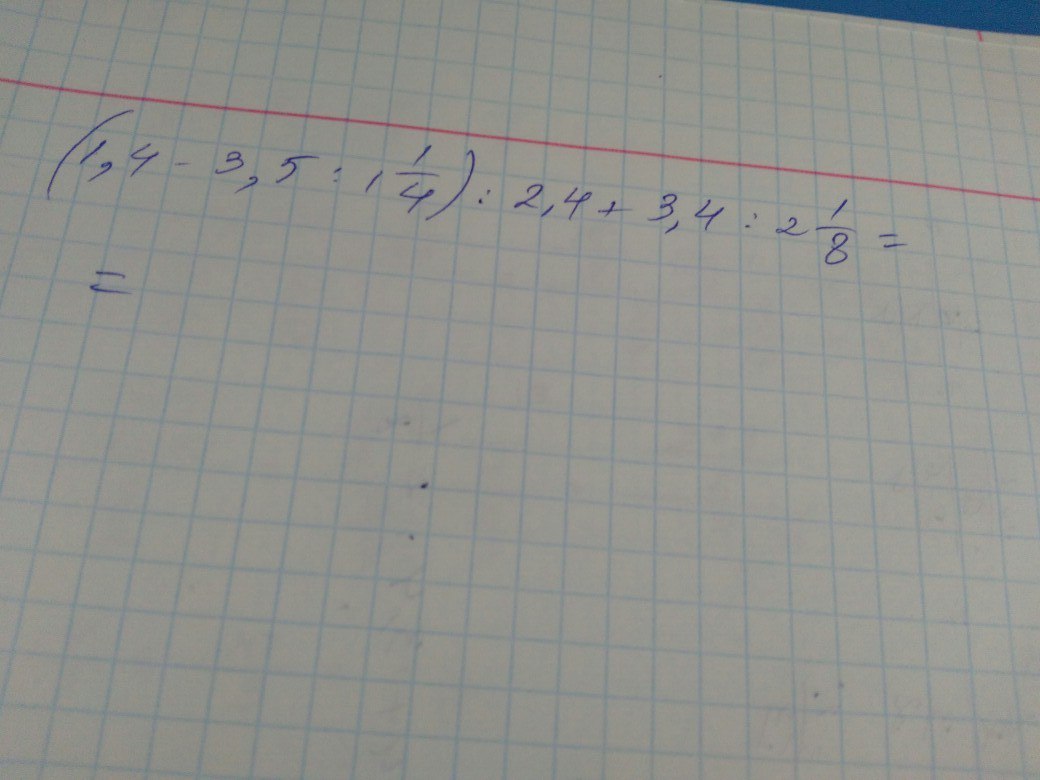 (1,4 - 3,5 : 1 1/4) : 2,4 + 3,4 : 2 1/8 =
=